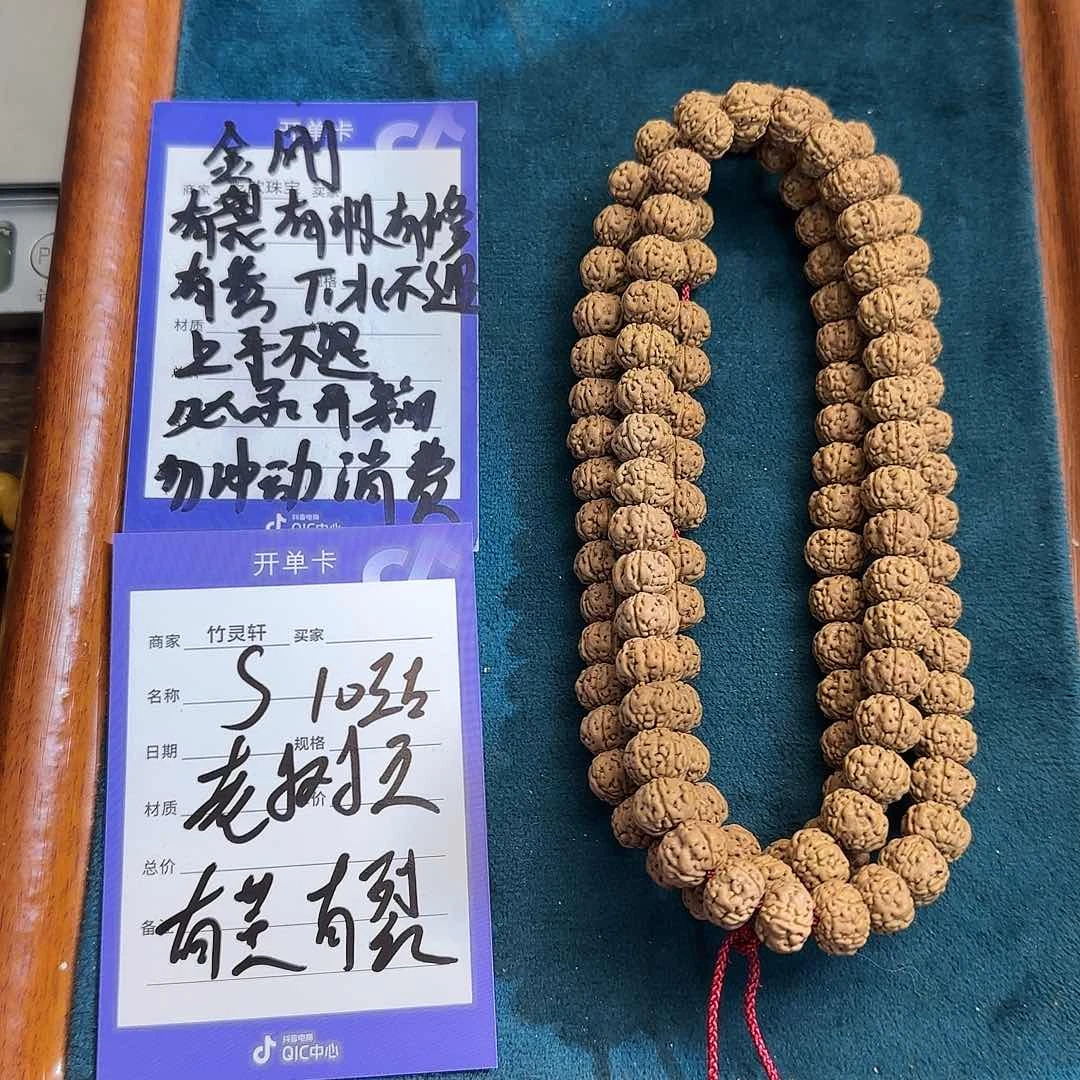 开单卡
金刚
商家 珠宝 买家
有裂有瑕有修
有差 下水不退
材质
上手不退
勿冲动消费
抖音电商
QIC中心
开单卡
商家 竹灵轩 买家
名称 S 10
日期 规格
材质 老树
总价
有芝 有裂
抖音电商
QIC中心